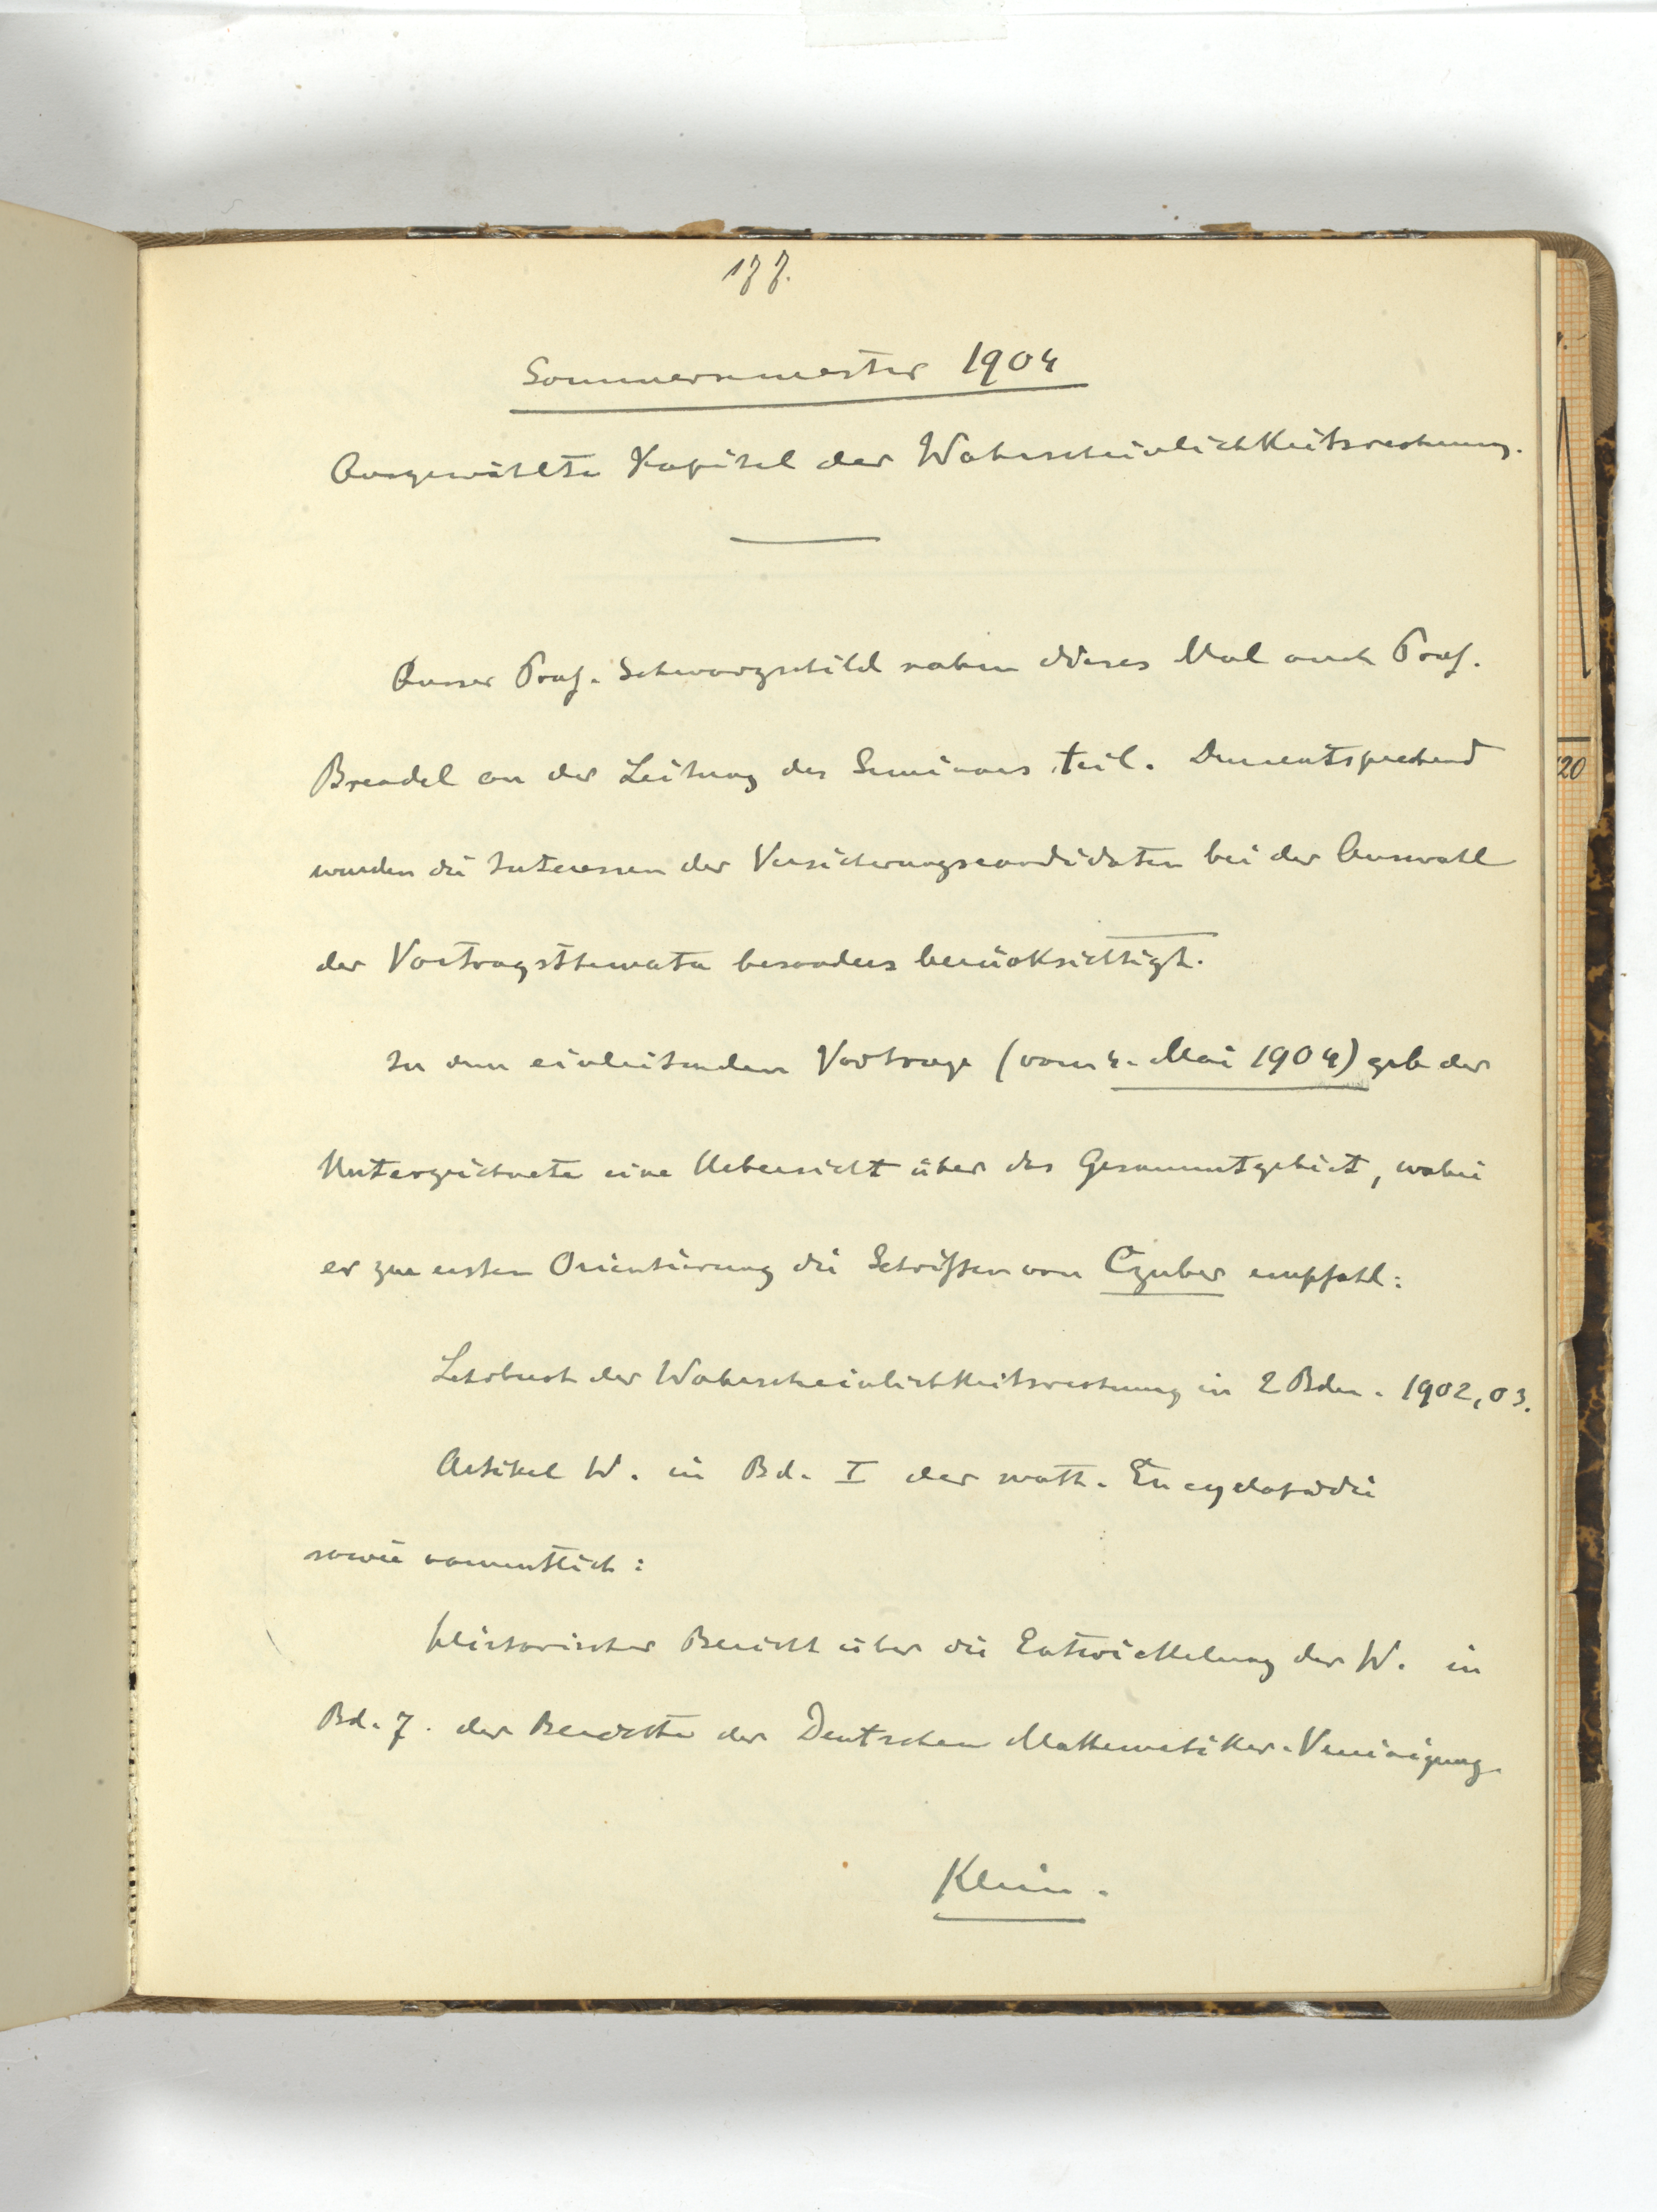 177.
Sommersemester 1904
Ausgewählte Kapitel der Wahrscheinlichkeitsrechnung.
Ausser Prof. Schwarzschild nahm dieses Mal auch Prof.
Brendel an der Leitung des Seminars teil. Dementsprechend
wurden die Interessen der Versicherungscandidaten bei der Auswahl
der Vortragsthemata besonders berücksichtigt.
In dem einleitenden Vortrage (vom 4. Mai 1904) gab der
Unterzeichnete eine Uebersicht über das Gesammtgebiet, wobei
er zur ersten Orientierung die Schriften von Czuber empfahl:
Lehrbuch der Wahrscheinlichkeitsrechnung in 2 Bden. 1902, 03.
Artikel W. in Bd. I der math. Encyclopädie
sowie namentlich:
Historischer Bericht über die Entwickelung der W. in
Bd. 7. der Berichte der Deutschen Mathematiker-Vereinigung.
Klein.
20